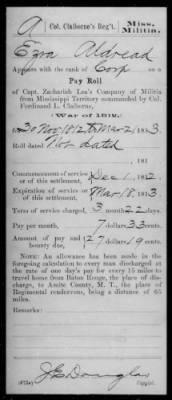 A
Col. Claiborne's Reg't.
Miss. Militia.
Ezra Aldread
Appears with the rank of Corp on a
Pay Roll
of Capt. Zachariah Lea's Company of Militia
from Mississippi Territory commanded by Col.
Ferdinand L. Claiborne,
(War of 1812,)
for 30 Nov 1812 to Mar 21, 1813.
Roll dated Not dated
, 181
Commencement of service or of this settlement, Dec 1, 1812.
Expiration of service or of this settlement, Mar 18, 1813.
Term of service charged, 3 months 22 days.
Pay per month, 7 dollars 33 cents
Amount of pay and bounty due, 27 dollars 19 cents.
NOTE: An allowance has been made in the
foregoing calculation to every man discharged at
the rate of one day's pay for every 15 miles to
travel home from Baton Rouge, the place of dis-
charge, to Amite County, M. T., the place of
Regimental rendezvous, being a distance of 65
miles.
Remarks:
J.E. Douglas
Copyist.